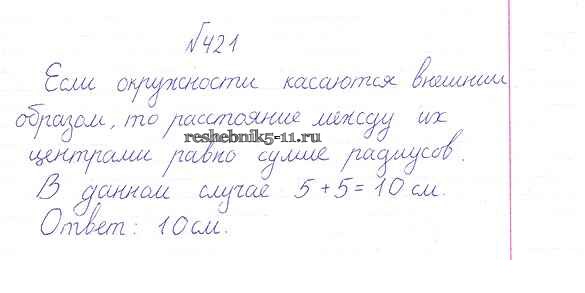 №421
Если окружности касаются внешним
образом, то расстояние между их
reshebnik5-11.ru
центрами равно сумме радиусов.
В данном случае 5+5=10 см.
Ответ: 10 см.